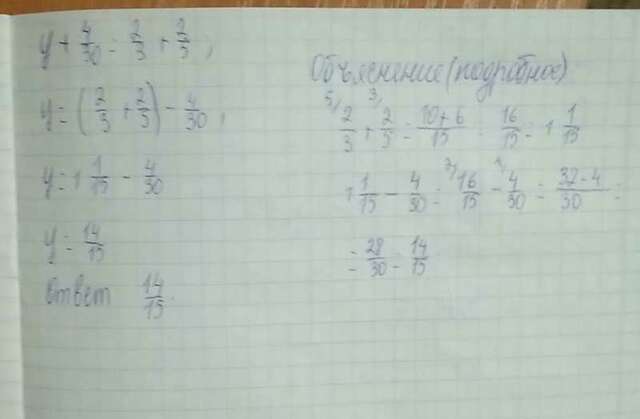 y + 4/30 = 2/3 + 2/5,
y = (2/3 + 2/5) - 4/30,
y = 1 1/15 - 4/30
y = 14/15
Ответ 14/15.
Объяснение (подробное)
5/ 2/3 + 3/ 2/5 = 10+6/15 = 16/15 = 1 1/15
1 1/15 - 4/30 = 2/ 16/15 - 1/ 4/30 = 32-4/30 =
= 28/30 = 14/15